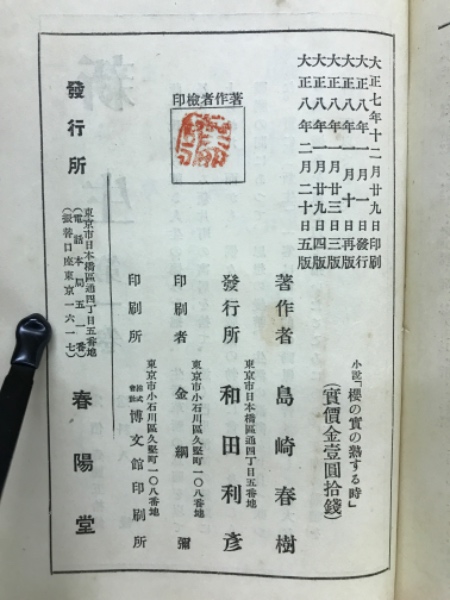 大正七年十二月廿九日印刷
大正八年一月一日發行
大正八年一月十日再版
大正八年一月廿三日三版
大正八年一月廿九日四版
大正八年二月二十日五版
著作者檢印
小説「櫻の實の熟する時」
(實價金壹圓拾錢)
著作者 島崎春樹
東京市日本橋區通四丁目五番地
發行所 和田利彦
東京市小石川區久堅町一〇八番地
印刷者 金綱 彌
東京市小石川區久堅町一〇八番地
印刷所 株式會社 博文館印刷所
發行所 東京市日本橋區通四丁目五番地
(電話本局五一番)
(振替口座東京一六一七)
春陽堂